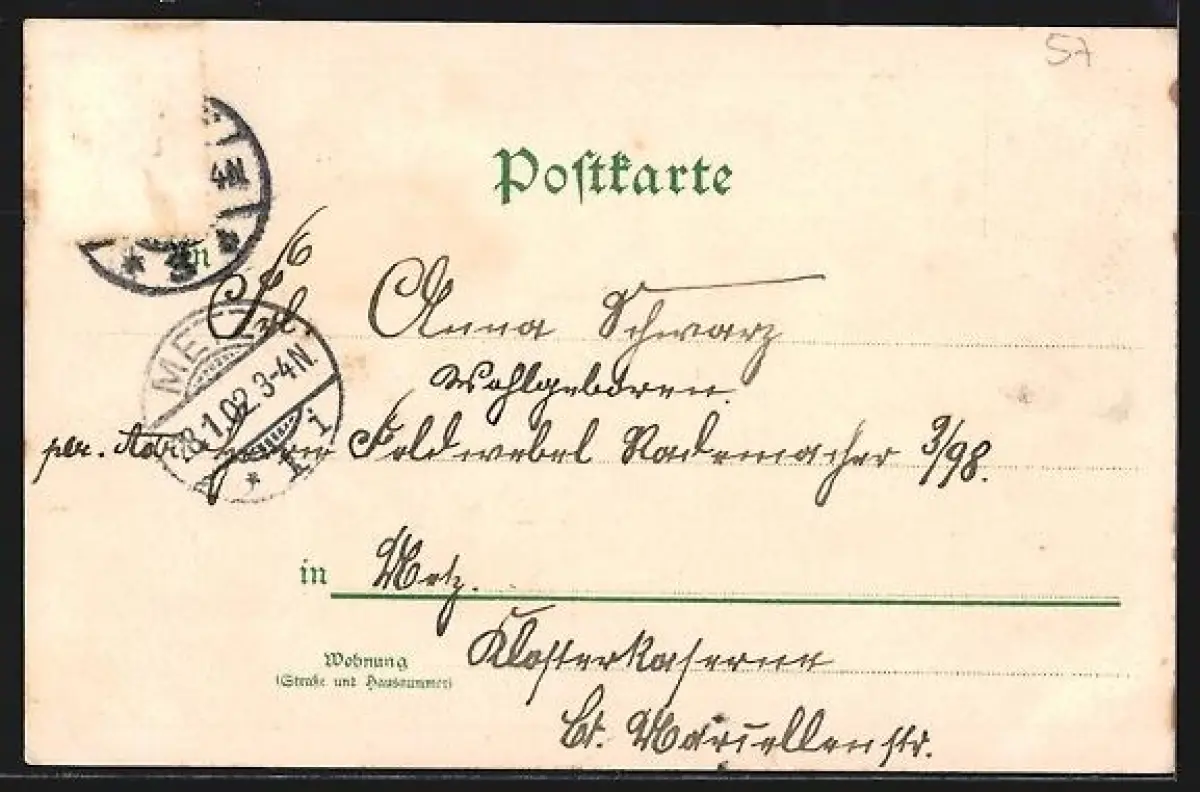 57
Postkarte
4N
An
Frl. Anna Schwarz
Wohlgeboren.
METZ
28.1.02.3-4N.
per. Adr. Herrn Feldwebel Rademacher 3/98.
in Metz.
Wohnung
(Straße und Hausnummer)
Klosterkaserne
St. Marcellenstr.